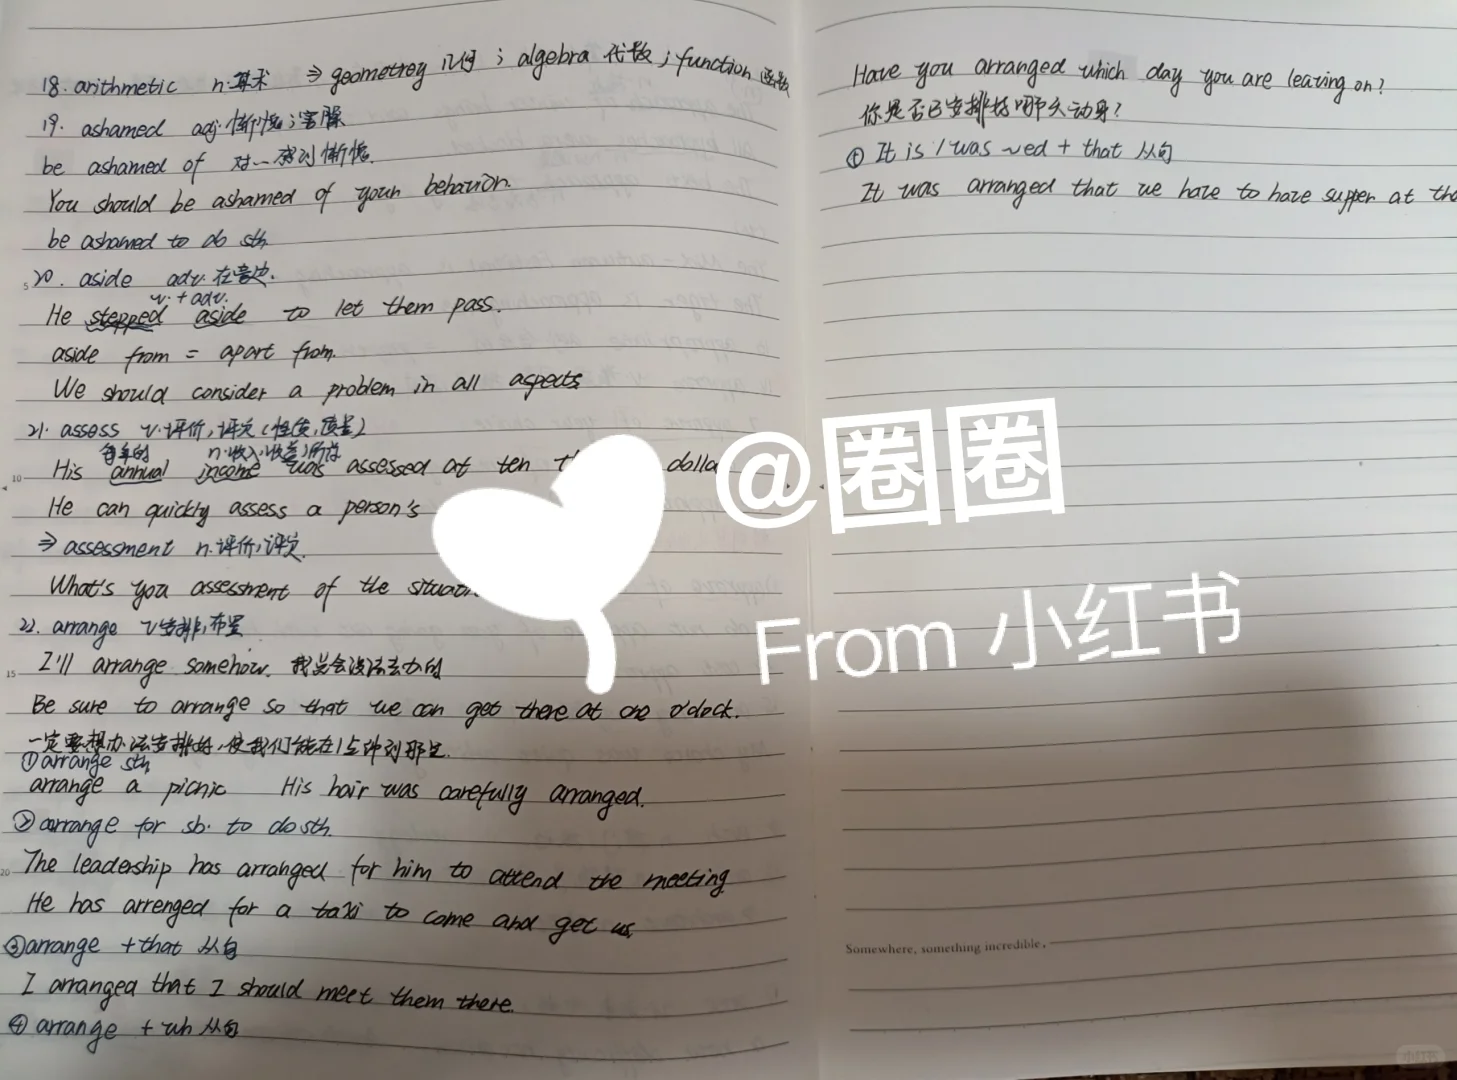 18. arithmetic n.算术 ⇒ geometrey 几何 ; algebra 代数 ; function 函数
19. ashamed adj.惭愧;害臊
be ashamed of 对…感到惭愧.
You should be ashamed of your behavior.
be ashamed to do sth
20. aside adv.在旁边.
v.+adv.
He stepped aside to let them pass.
aside from = apart from.
We should consider a problem in all aspects
21. assess v.评价,评定(性质,质量)
每年的 n.收入,收益,所得
His annual income was assessed at ten dolla
He can quickly assess a person's
⇒ assessment n.评价,评定.
What's you assessment of the situation
22. arrange v.安排,布置
I'll arrange somehow. 我总会设法去办的
Be sure to arrange so that we can get there at one o'clock.
一定要想办法安排好,使我们能在1点钟到那里.
①arrange sth
arrange a picnic His hair was carefully arranged.
②arrange for sb. to do sth
The leadership has arranged for him to attend the meeting
He has arrenged for a taxi to come and get us
③arrange +that 从句
I arranged that I should meet them there.
④arrange + wh 从句
Have you arranged which day you are leaving on?
你是否已安排好哪天动身?
⊕ It is / was ~ed + that 从句
It was arranged that we have to have supper at
Somewhere, something incredible.
@圈圈
From 小红书
小红书